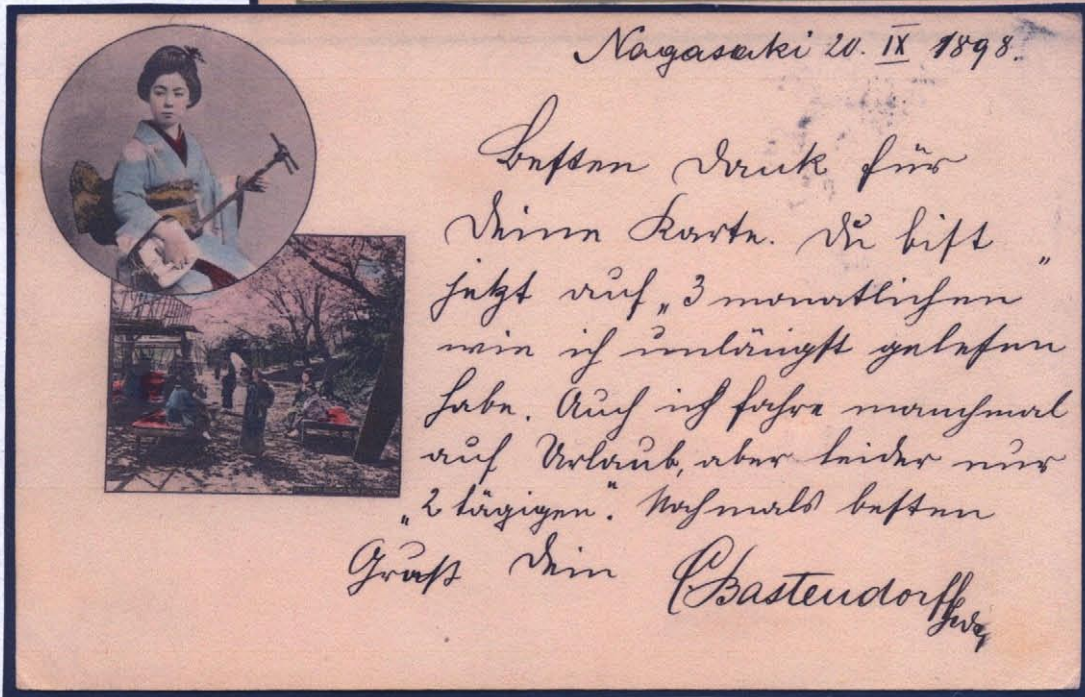 Nagasaki 20. IX 1898.
Besten Dank für
Deine Karte. Du bist
jetzt auf „3 monatlichen"
wie ich unlängst gelesen
habe. Auch ich fahre manchmal
auf Urlaub, aber leider nur
„2 tägigen". Nochmals besten
Gruß Dein CBastendorff